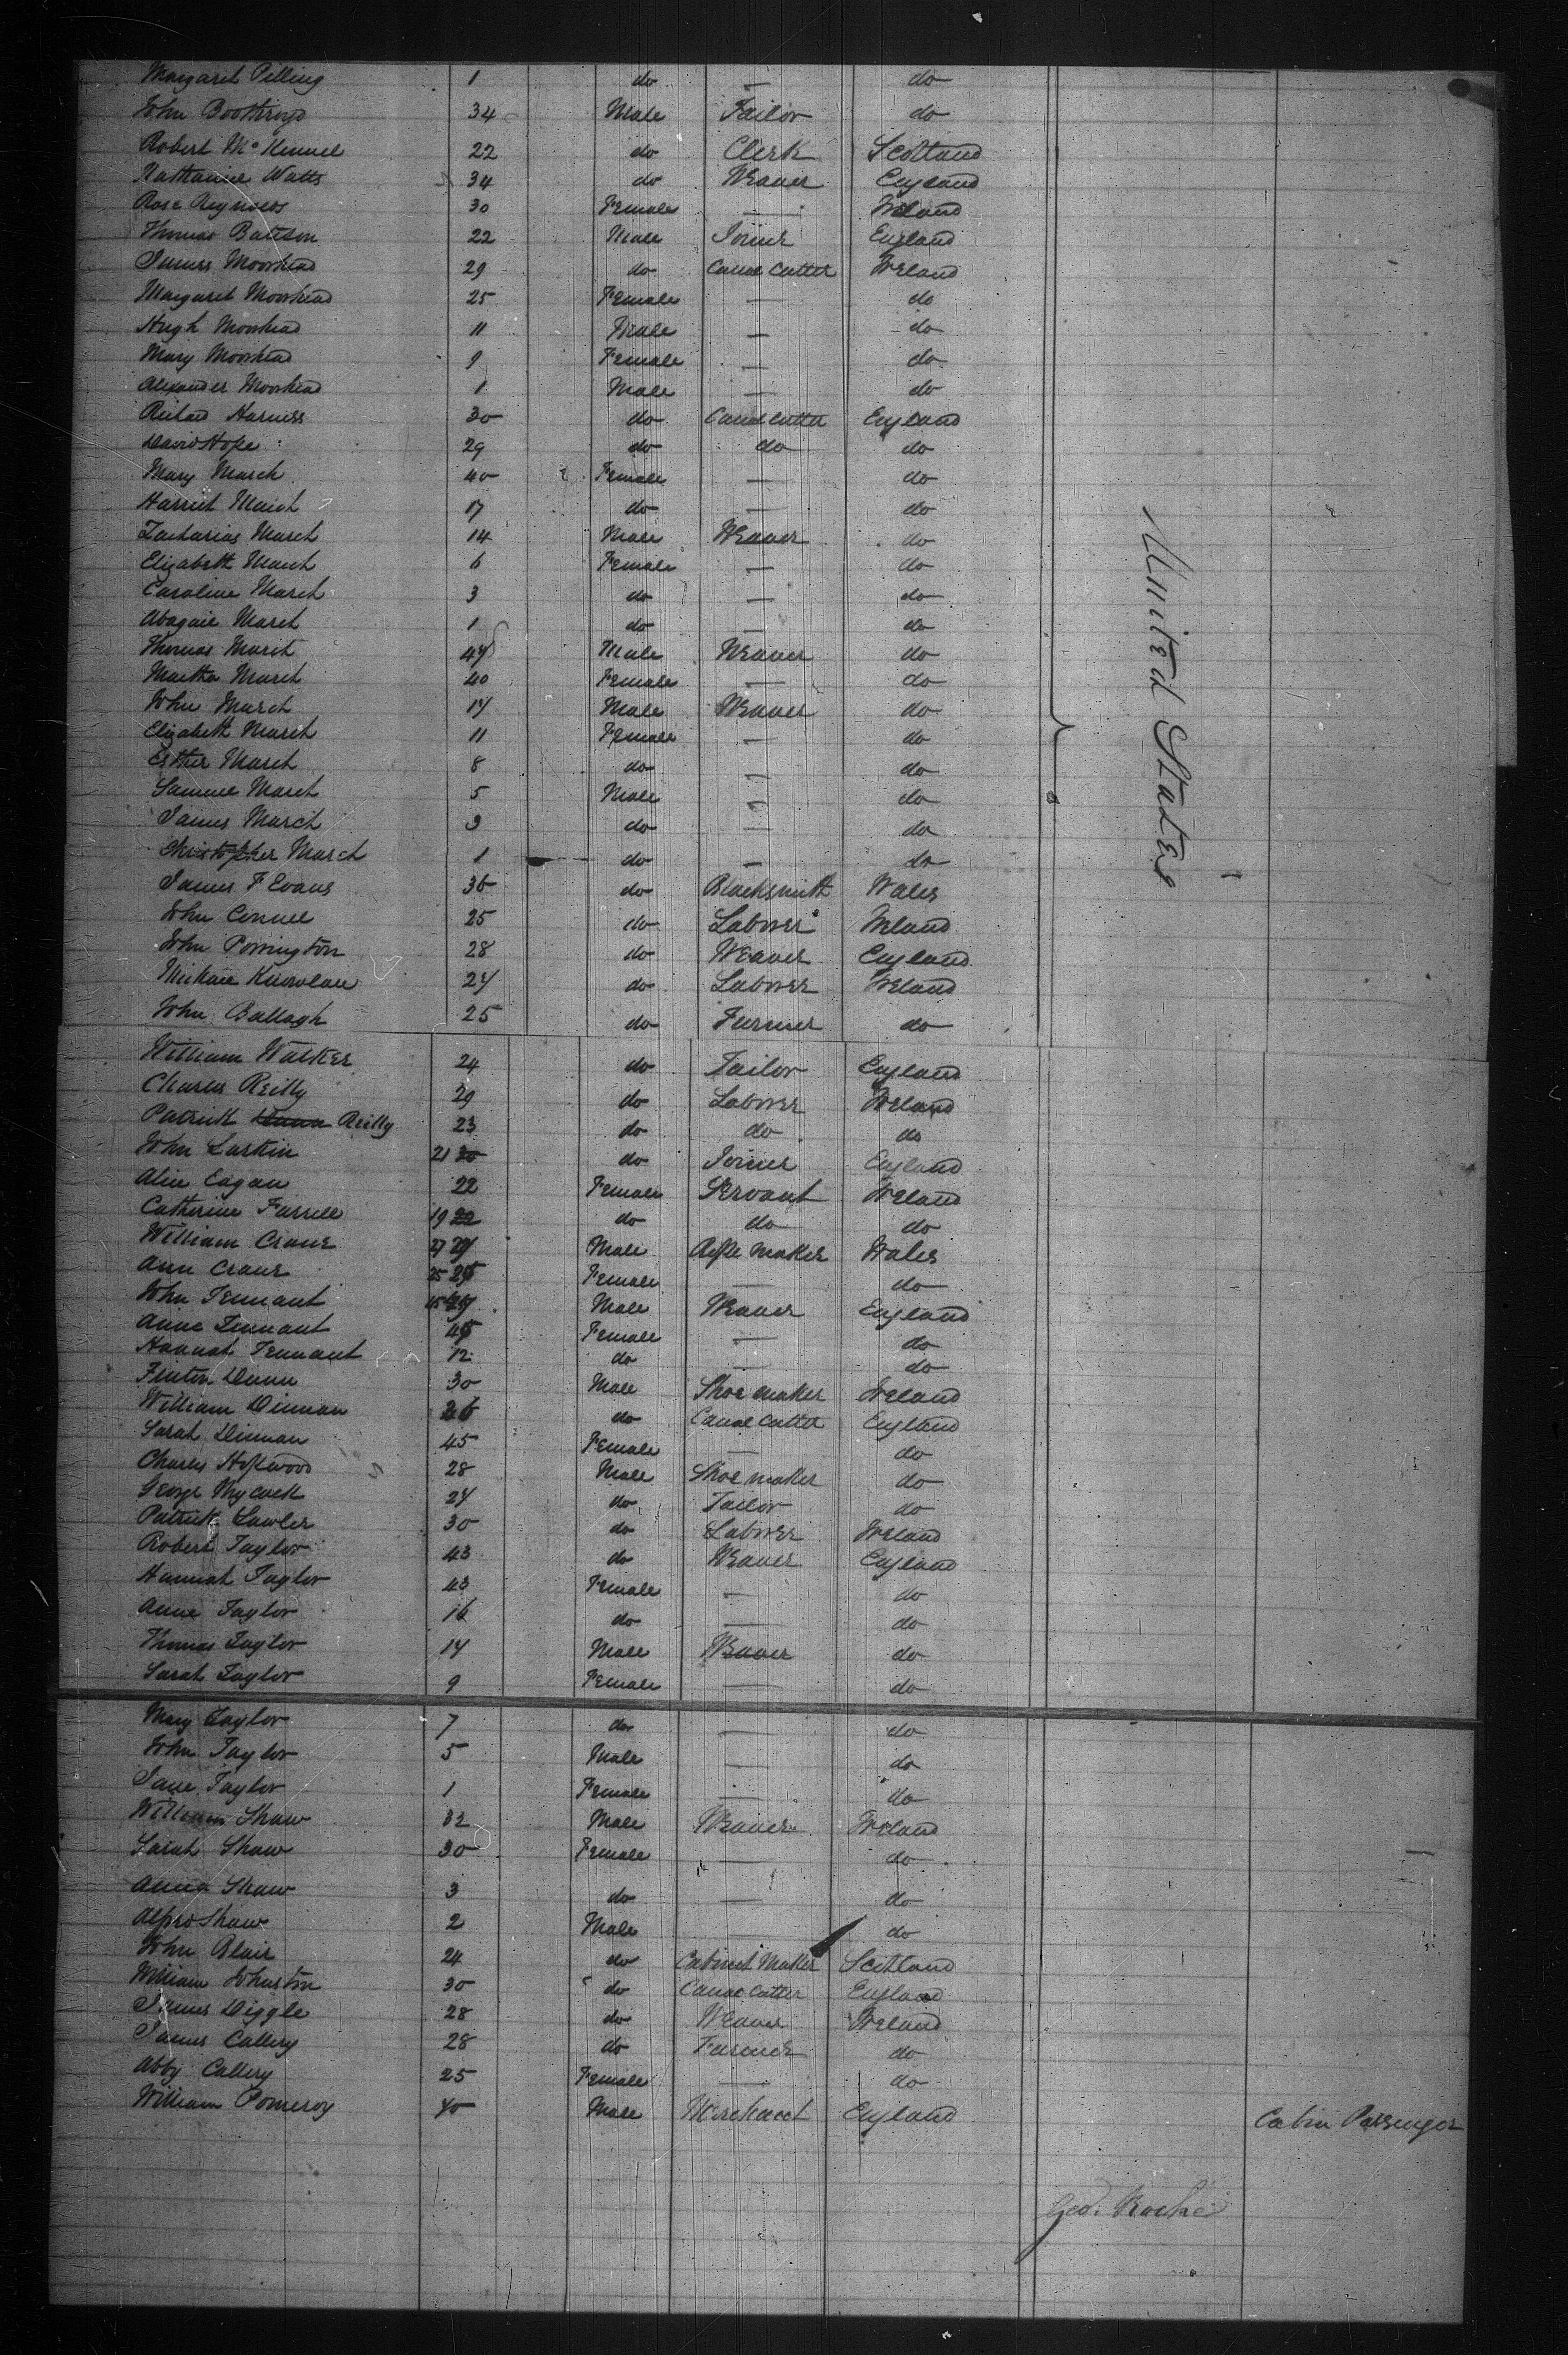 Margaret Pilling 1 do — do
John Boothroyd 34 Male Tailor do
Robert McKennel 22 do Clerk Scotland
Nathaniel Watts 34 do Weaver England
Rose Reynolds 30 Female — Ireland
Thomas Bateson 22 Male Joiner England
James Moorhead 29 do Canal Cutter Ireland
Margaret Moorhead 25 Female — do
Hugh Moorhead 11 Male — do
Mary Moorhead 9 Female — do
Alexander Moorhead 1 Male — do
Richard Harness 30 do Canal Cutter England
David Hope 29 do do do
Mary March 40 Female — do
Harriet March 17 do — do
Zacharias March 14 Male Weaver do
Elizabeth March 6 Female — do
Caroline March 3 do — do
Abagail March 1 do — do
Thomas March Male Weaver do
Martha March 40 Female — do
John March 14 Male Weaver do
Elizabeth March 11 Female — do
Esther March 8 do — do
Samuel March 5 Male — do
James March 3 do — do
Christopher March 1 do — do
James F Evans 36 do Blacksmith Wales
John Connel 25 do Laborer Ireland
John Porrington 28 do Weaver England
Michael Knowlan 24 do Laborer Ireland
John Ballagh 25 do Farmer do
United States
William Walker 24 do Tailor England
Charles Reilly 29 do Laborer Ireland
Patrick Reilly 23 do do do
John Larkin 21 do Joiner England
Alice Eagan 22 Female Servant Ireland
Catherine Farrell 19 22 do do do
William Crane 27 Male Maker Wales
Ann Crane 25 Female — do
John Tennant 45 Male Weaver England
Anne Tennant 45 Female — do
Hannah Tennant 12 do — do
Finton Dunn 30 Male Shoe maker Ireland
William Dinman do Canal Cutter England
Sarah Dinman 45 Female — do
Charles Hopwood 28 Male Shoe maker do
George Mycock 24 do Tailor do
Patrick Lawler 30 do Laborer Ireland
Robert Taylor 43 do Weaver England
Hannah Taylor 43 Female — do
Anne Taylor 16 do — do
Thomas Taylor 14 Male Weaver do
Sarah Taylor 9 Female — do
Mary Taylor 7 do — do
John Taylor 5 Male — do
Jane Taylor 1 Female — do
William Shaw 32 Male Weaver Ireland
Sarah Shaw 30 Female — do
Anna Shaw 3 do — do
Alfred Shaw 2 Male do
John Blair 24 do Cabinet Maker Scotland
William Johnston 30 do Canal Cutter England
James Diggle 28 do Weaver Ireland
James Callery 28 do Farmer do
Abby Callery 25 Female — do
William Pomeroy 40 Male Merchant England Cabin Passenger
Geo. Roche